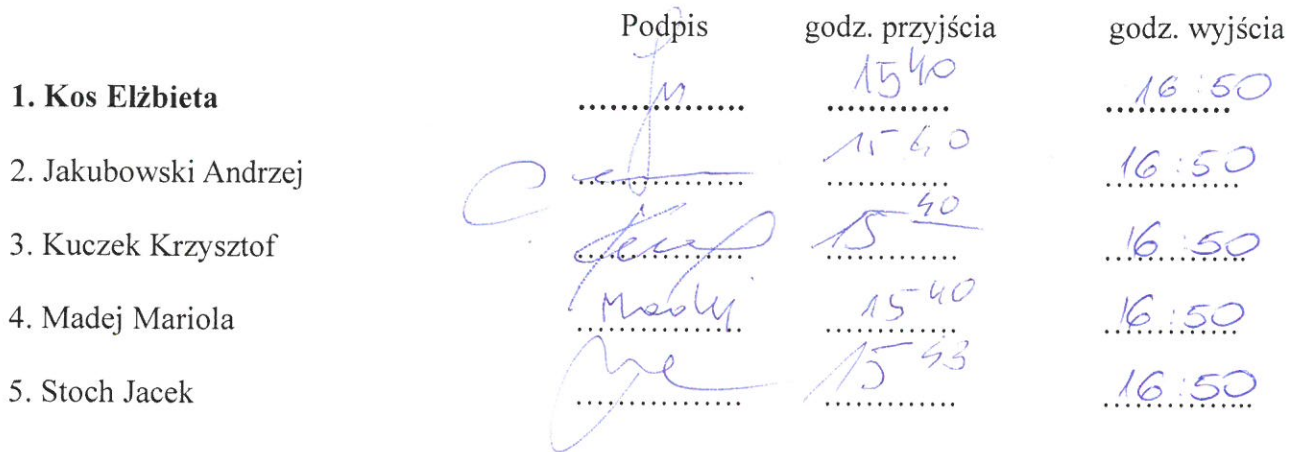 Podpis godz. przyjścia godz. wyjścia
1. Kos Elżbieta 15 40 16:50
2. Jakubowski Andrzej 15 40 16:50
3. Kuczek Krzysztof 15 40 16:50
4. Madej Mariola Madej 15 40 16:50
5. Stoch Jacek 15 43 16:50